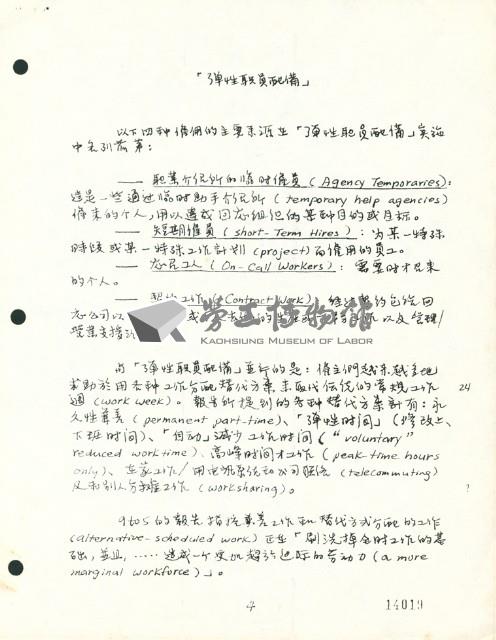 「彈性職員配備」
以下四種僱佣的主要來源在「彈性職員配備」实施
中名列前茅:
—— 职業介紹所的临时僱員 (Agency Temporaries):
這是一些通过临时助手介紹所 (temporary help agencies)
僱來的个人,用以達成回应組织的某种目的或目标。
—— 短期僱員 (short-Term Hires): 为某一特殊
时段或某一特殊工作計划 (project) 而僱用的員工。
—— 工人 (On-Call Workers): 需要时才見來
的个人。
—— 工作 (Contract Work):
勞工博物館
KAOHSIUNG MUSEUM OF LABOR
与「彈性职員配備」並行的是: 僱主們越來越多地
求助於用各种工作分配替代方案來取代傳統的常规工作
週 (work week)。報告所提到的各种替代方案計有: 永
久性兼差 (permanent part-time)、「彈性时间」(修改上、
下班时间)、「自动」減少工作时间 ("voluntary"
reduced work time)、高峰时间才工作 (peak-time hours
only)、在家工作/用电訊系统 (telecommuting)
及和别人分擔工作 (worksharing)。
9 to 5 的報告指 兼差工作和替代方式分配的工作
(alternative-scheduled work) 正在「刷洗掉全时工作的基
础,並且,..... 造成一个更加趋於边际的劳动力 (a more
marginal workforce)」。
24
?
4
14019